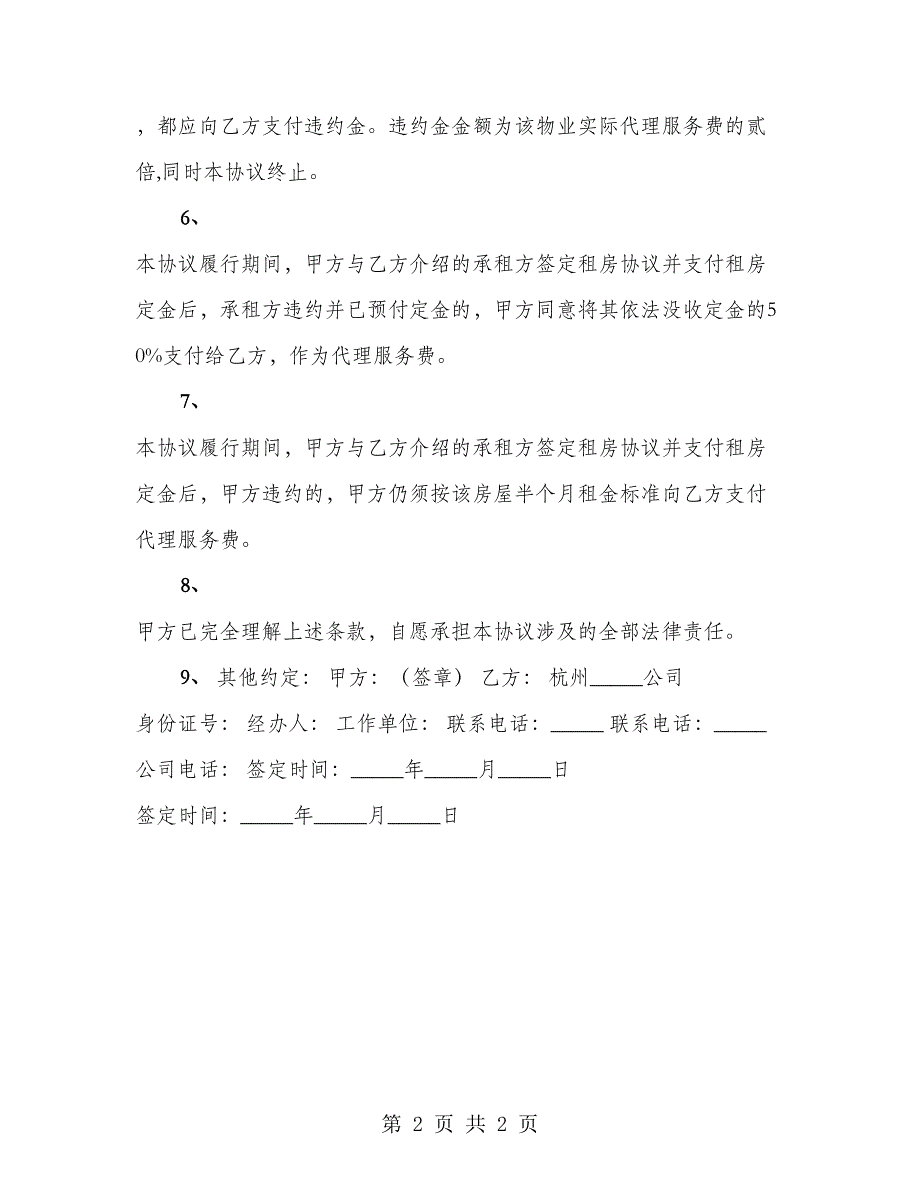 ，都应向乙方支付违约金。违约金金额为该物业实际代理服务费的贰
倍,同时本协议终止。
6、
本协议履行期间，甲方与乙方介绍的承租方签定租房协议并支付租房
定金后，承租方违约并已预付定金的，甲方同意将其依法没收定金的5
0%支付给乙方，作为代理服务费。
7、
本协议履行期间，甲方与乙方介绍的承租方签定租房协议并支付租房
定金后，甲方违约的，甲方仍须按该房屋半个月租金标准向乙方支付
代理服务费。
8、
甲方已完全理解上述条款，自愿承担本协议涉及的全部法律责任。
9、 其他约定： 甲方：（签章） 乙方： 杭州_____公司
身份证号： 经办人： 工作单位： 联系电话：_____ 联系电话：_____
公司电话： 签定时间：_____年_____月_____日
签定时间：_____年_____月_____日
第 2 页 共 2 页